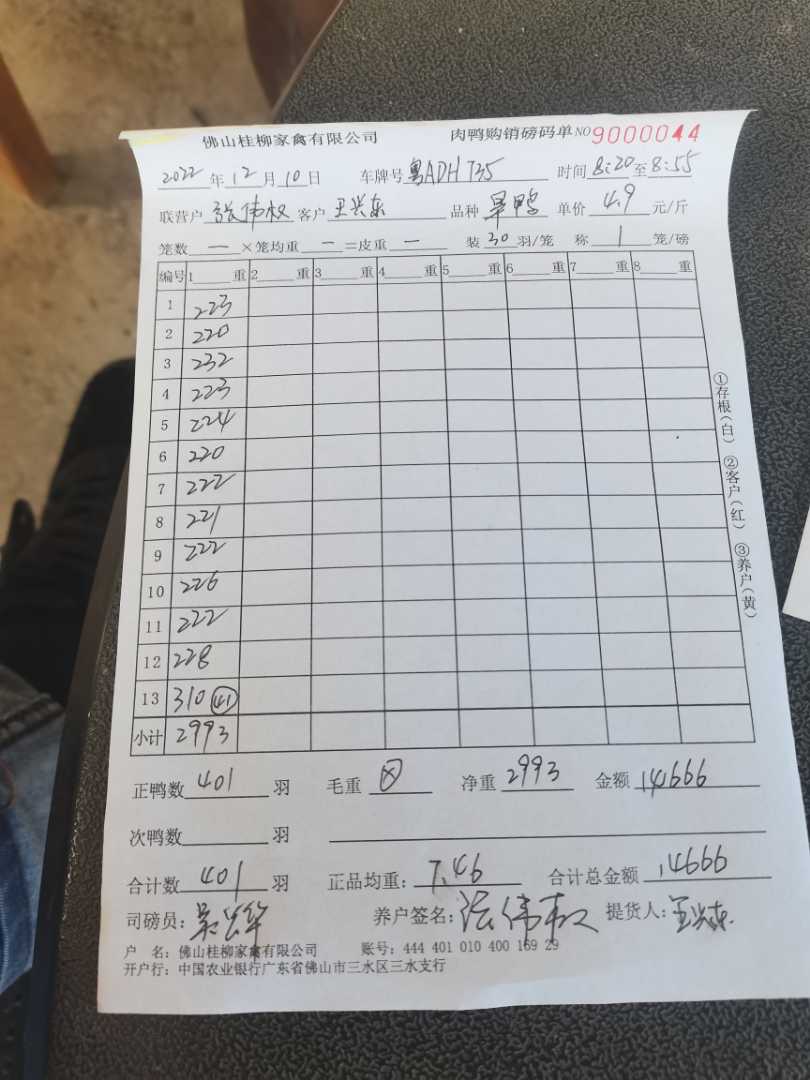 佛山桂柳家禽有限公司 肉鸭购销磅码单 NO 9000044
2022年12月10日 车牌号粤ADH T35 时间8:20至8:55
联营户 张伟权 客户 王兴东 品种 旱鸭 单价 4.9 元/斤
笼数 一 ×笼均重 一 =皮重 一 装 30 羽/笼 称 1 笼/磅
编号 1 重 2 重 3 重 4 重 5 重 6 重 7 重 8 重
1 223
2 220
3 232
4 223
5 224
6 220
7 222
8 221
9 222
10 226
11 222
12 228
13 310 (41)
小计 2993
正鸭数 401 羽 毛重 ⊗ 净重 2993 金额 14666
次鸭数 羽
合计数 401 羽 正品均重: 7.46 合计总金额 14666
司磅员: 养户签名: 张伟权 提货人: 王兴东
户 名: 佛山桂柳家禽有限公司 账号: 444 401 010 400 169 29
开户行: 中国农业银行广东省佛山市三水区三水支行
①存根(白) ②客户(红) ③养户(黄)